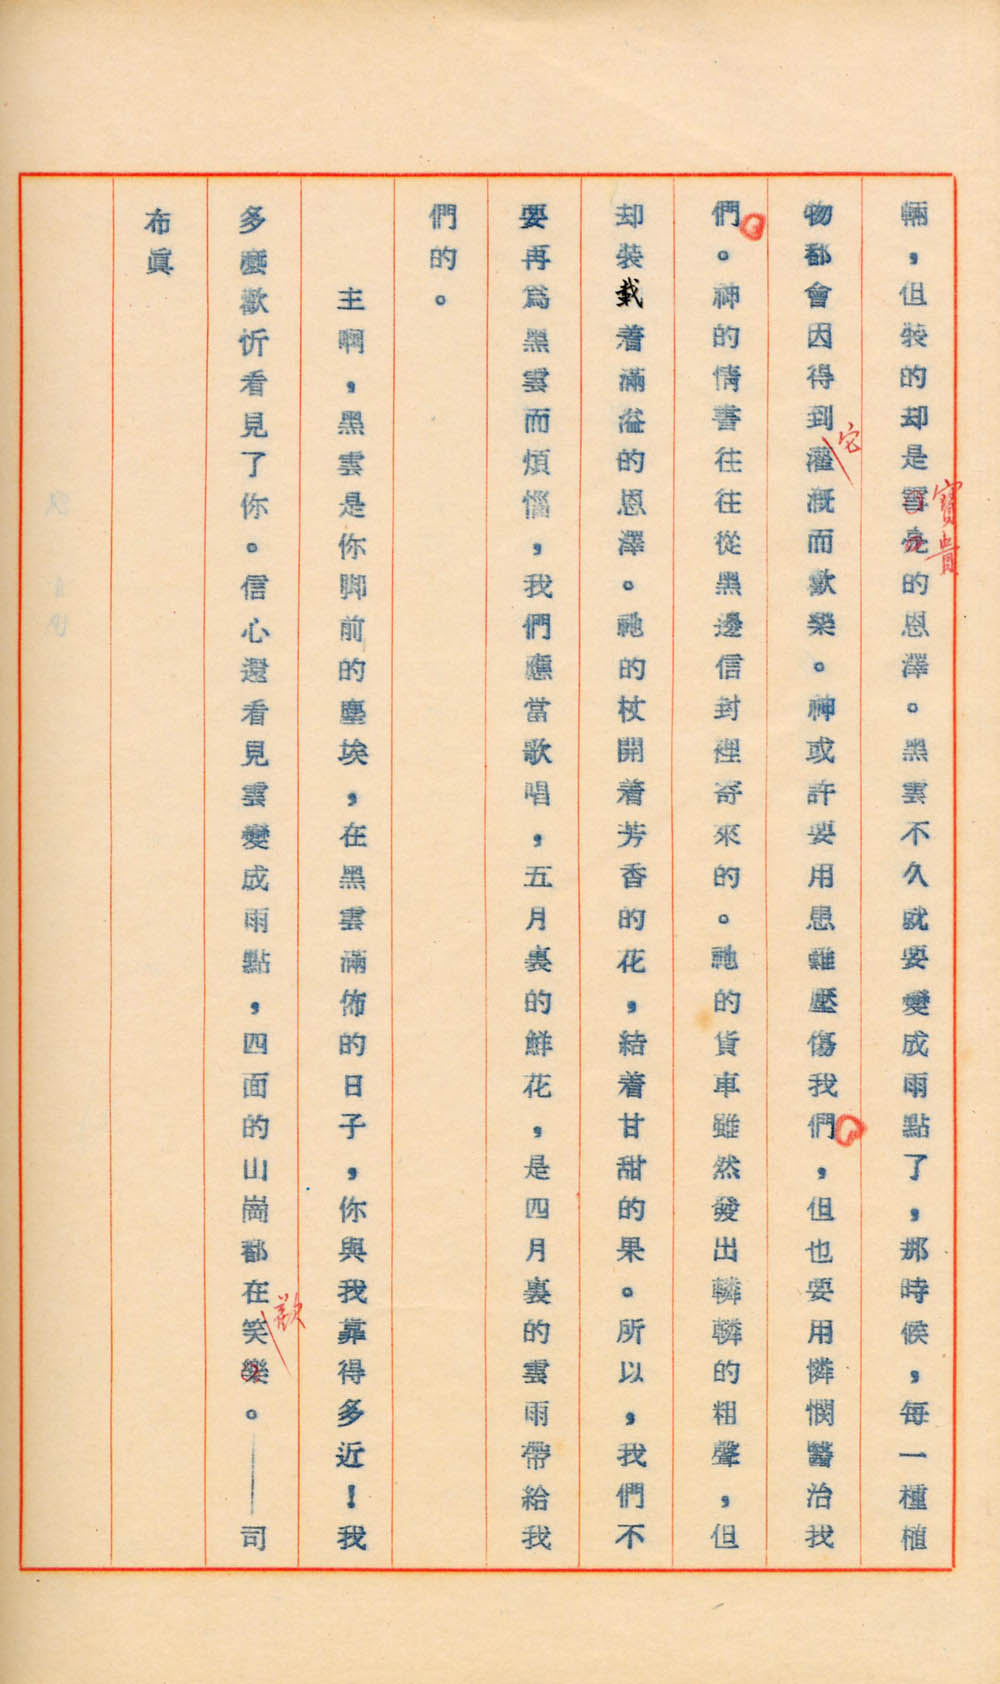 輛，但裝的却是的恩澤。黑雲不久就要變成雨點了，那時候，每一種植
寶貴
物都會因得到灌溉而歡樂。神或許要用患難壓傷我們，但也要用憐憫醫治找
它
們。神的情書往往從黑邊信封裡寄來的。祂的貨車雖然發出轔轔的粗聲，但
却裝載着滿溢的恩澤。祂的杖開着芳香的花，結着甘甜的果。所以，我們不
要再爲黑雲而煩惱，我們應當歌唱，五月裏的鮮花，是四月裏的雲雨帶給我
們的。
主啊，黑雲是你脚前的塵埃，在黑雲滿佈的日子，你與我靠得多近！我
多麽歡忻看見了你。信心還看見雲變成雨點，四面的山崗都在笑樂。——司
歡
布眞